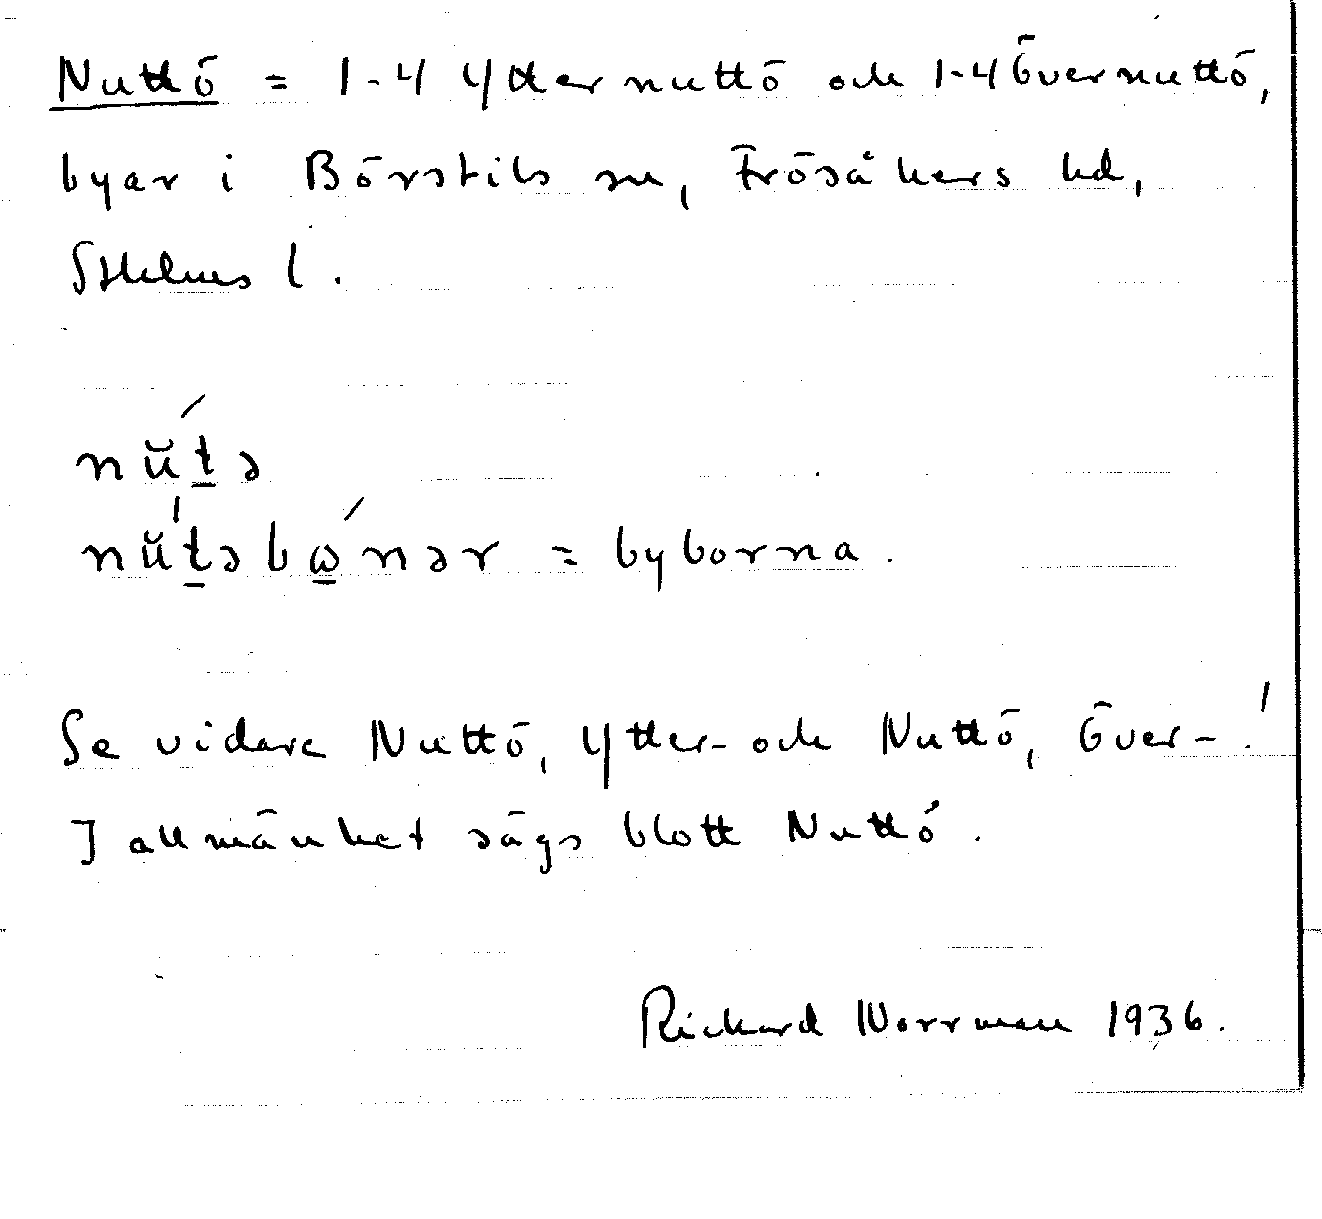 Nuttö = 1-4 Ytternuttö och 1-4 Övernuttö,
byar i Börstils sn, Frösåkers hd,
Sthlms l.
nŭ́ṯə
nŭ́ṯəbώ̱nər = byborna.
Se vidare Nuttö, Ytter- och Nuttö, Över-!
I allmänhet sägs blott Nuttö.
Rickard Norrman 1936.